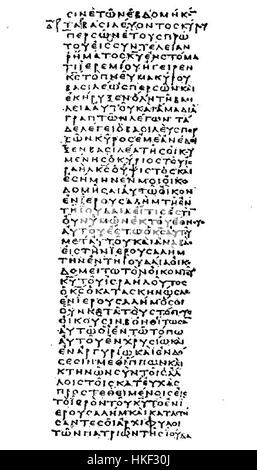 ϹΙΝΕΤΩΝΕΒΔΟΜΗΚ
ΤΑΒΑϹΙΛΕΥΟΝΤΟϹΚΥΡΟΥ
ΠΕΡϹΩΝΕΤΟΥϹΠΡΩ
ΤΟΥΕΙϹϹΥΝΤΕΛΕΙΑΝ
ΡΗΜΑΤΟϹΚΥΕΝϹΤΟΜΑ
ΤΙΙΕΡΕΜΙΟΥΗΓΕΙΡΕΝ
ΚϹΤΟΠΝΕΥΜΑΚΥΡΟΥ
ΒΑϹΙΛΕΩϹΠΕΡϹΩΝΚΑΙ
ΕΚΗΡΥΞΕΝΟΛΗΤΗΒΑϹΙ
ΛΕΙΑΑΥΤΟΥΚΑΙΑΜΑΔΙΑ
ΓΡΑΠΤΩΝΛΕΓΩΝΤΑ
ΔΕΛΕΓΕΙΟΒΑϹΙΛΕΥϹΠΕΡ
ϹΩΝΚΥΡΟϹΕΜΕΑΝΕΔΕΙ
ΞΕΝΒΑϹΙΛΕΑΤΗϹΟΙΚΟΥ
ΜΕΝΗϹΟΚΥΡΙΟϹΤΟΥΙϹ
ΡΑΗΛΚϹΟΥΨΙϹΤΟϹΚΑΙ
ΕϹΗΜΗΝΕΝΜΟΙΟΙΚΟ
ΔΟΜΗϹΑΙΑΥΤΩΟΙΚΟΝ
ΕΝΙΕΡΟΥϹΑΛΗΜΤΗΕΝ
ΤΗΙΟΥΔΑΙΑΕΙΤΙϹΕϹΤΙΝ
ΟΥΝΥΜΩΝΕΚΤΟΥΕΘΝΟΥϹ
ΑΥΤΟΥΕϹΤΩΟΚϹΑΥΤΟΥ
ΜΕΤΑΥΤΟΥΚΑΙΑΝΑΒΑϹ
ΕΙϹΤΗΝΙΕΡΟΥϹΑΛΗΜ
ΤΗΝΕΝΤΗΙΟΥΔΑΙΑΟΙΚΟ
ΔΟΜΕΙΤΩΤΟΝΟΙΚΟΝΤΟΥ
ΚΥΤΟΥΙϹΡΑΗΛΟΥΤΟϹ
ΟΚϹΟΚΑΤΑϹΚΗΝΩϹΑϹ
ΕΝΙΕΡΟΥϹΑΛΗΜΟϹΟΙ
ΟΥΝΚΑΤΑΤΟΥϹΤΟΠΟΥϹ
ΟΙΚΟΥϹΙΝΒΟΗΘΕΙΤΩϹΑΝ
ΑΥΤΩΟΙΕΝΤΩΤΟΠΩ
ΑΥΤΟΥΕΝΧΡΥϹΙΩΚΑΙ
ΕΝΑΡΓΥΡΙΩΚΑΙΕΝΔΟ
ϹΕϹΙΝΜΕΘΙΠΠΩΝΚΑΙ
ΚΤΗΝΩΝϹΥΝΤΟΙϹΑΛ
ΛΟΙϹΤΟΙϹΚΑΤΕΥΧΑϹ
ΠΡΟϹΤΕΘΕΙΜΕΝΟΙϹΕΙϹ
ΤΟΙΕΡΟΝΤΟΥΚΥΤΟΕΝΙ
ΕΡΟΥϹΑΛΗΜΚΑΙΚΑΤΑϹΤΗ
ϹΑΝΤΕϹΟΙΑΡΧΙΦΥΛΟΙ
ΤΩΝΠΑΤΡΙΩΝΤΗϹΙΟΥΔΑ